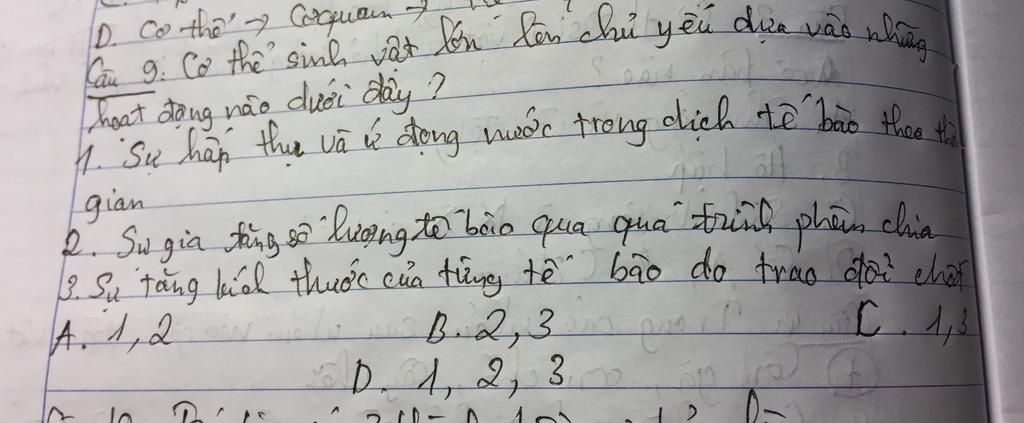 D. Cơ thể → Cơ quan →
Câu 9. Cơ thể sinh vật lớn lên chủ yếu dựa vào những
hoạt động nào dưới đây?
1. Sự hấp thụ và ứ đọng nước trong dịch tế bào theo
gian
2. Sự gia tăng số lượng tế bào qua quá trình phân chia
3. Sự tăng kích thước của từng tế bào do trao đổi chất
A. 1, 2 B. 2, 3 C. 1, 3
D. 1, 2, 3